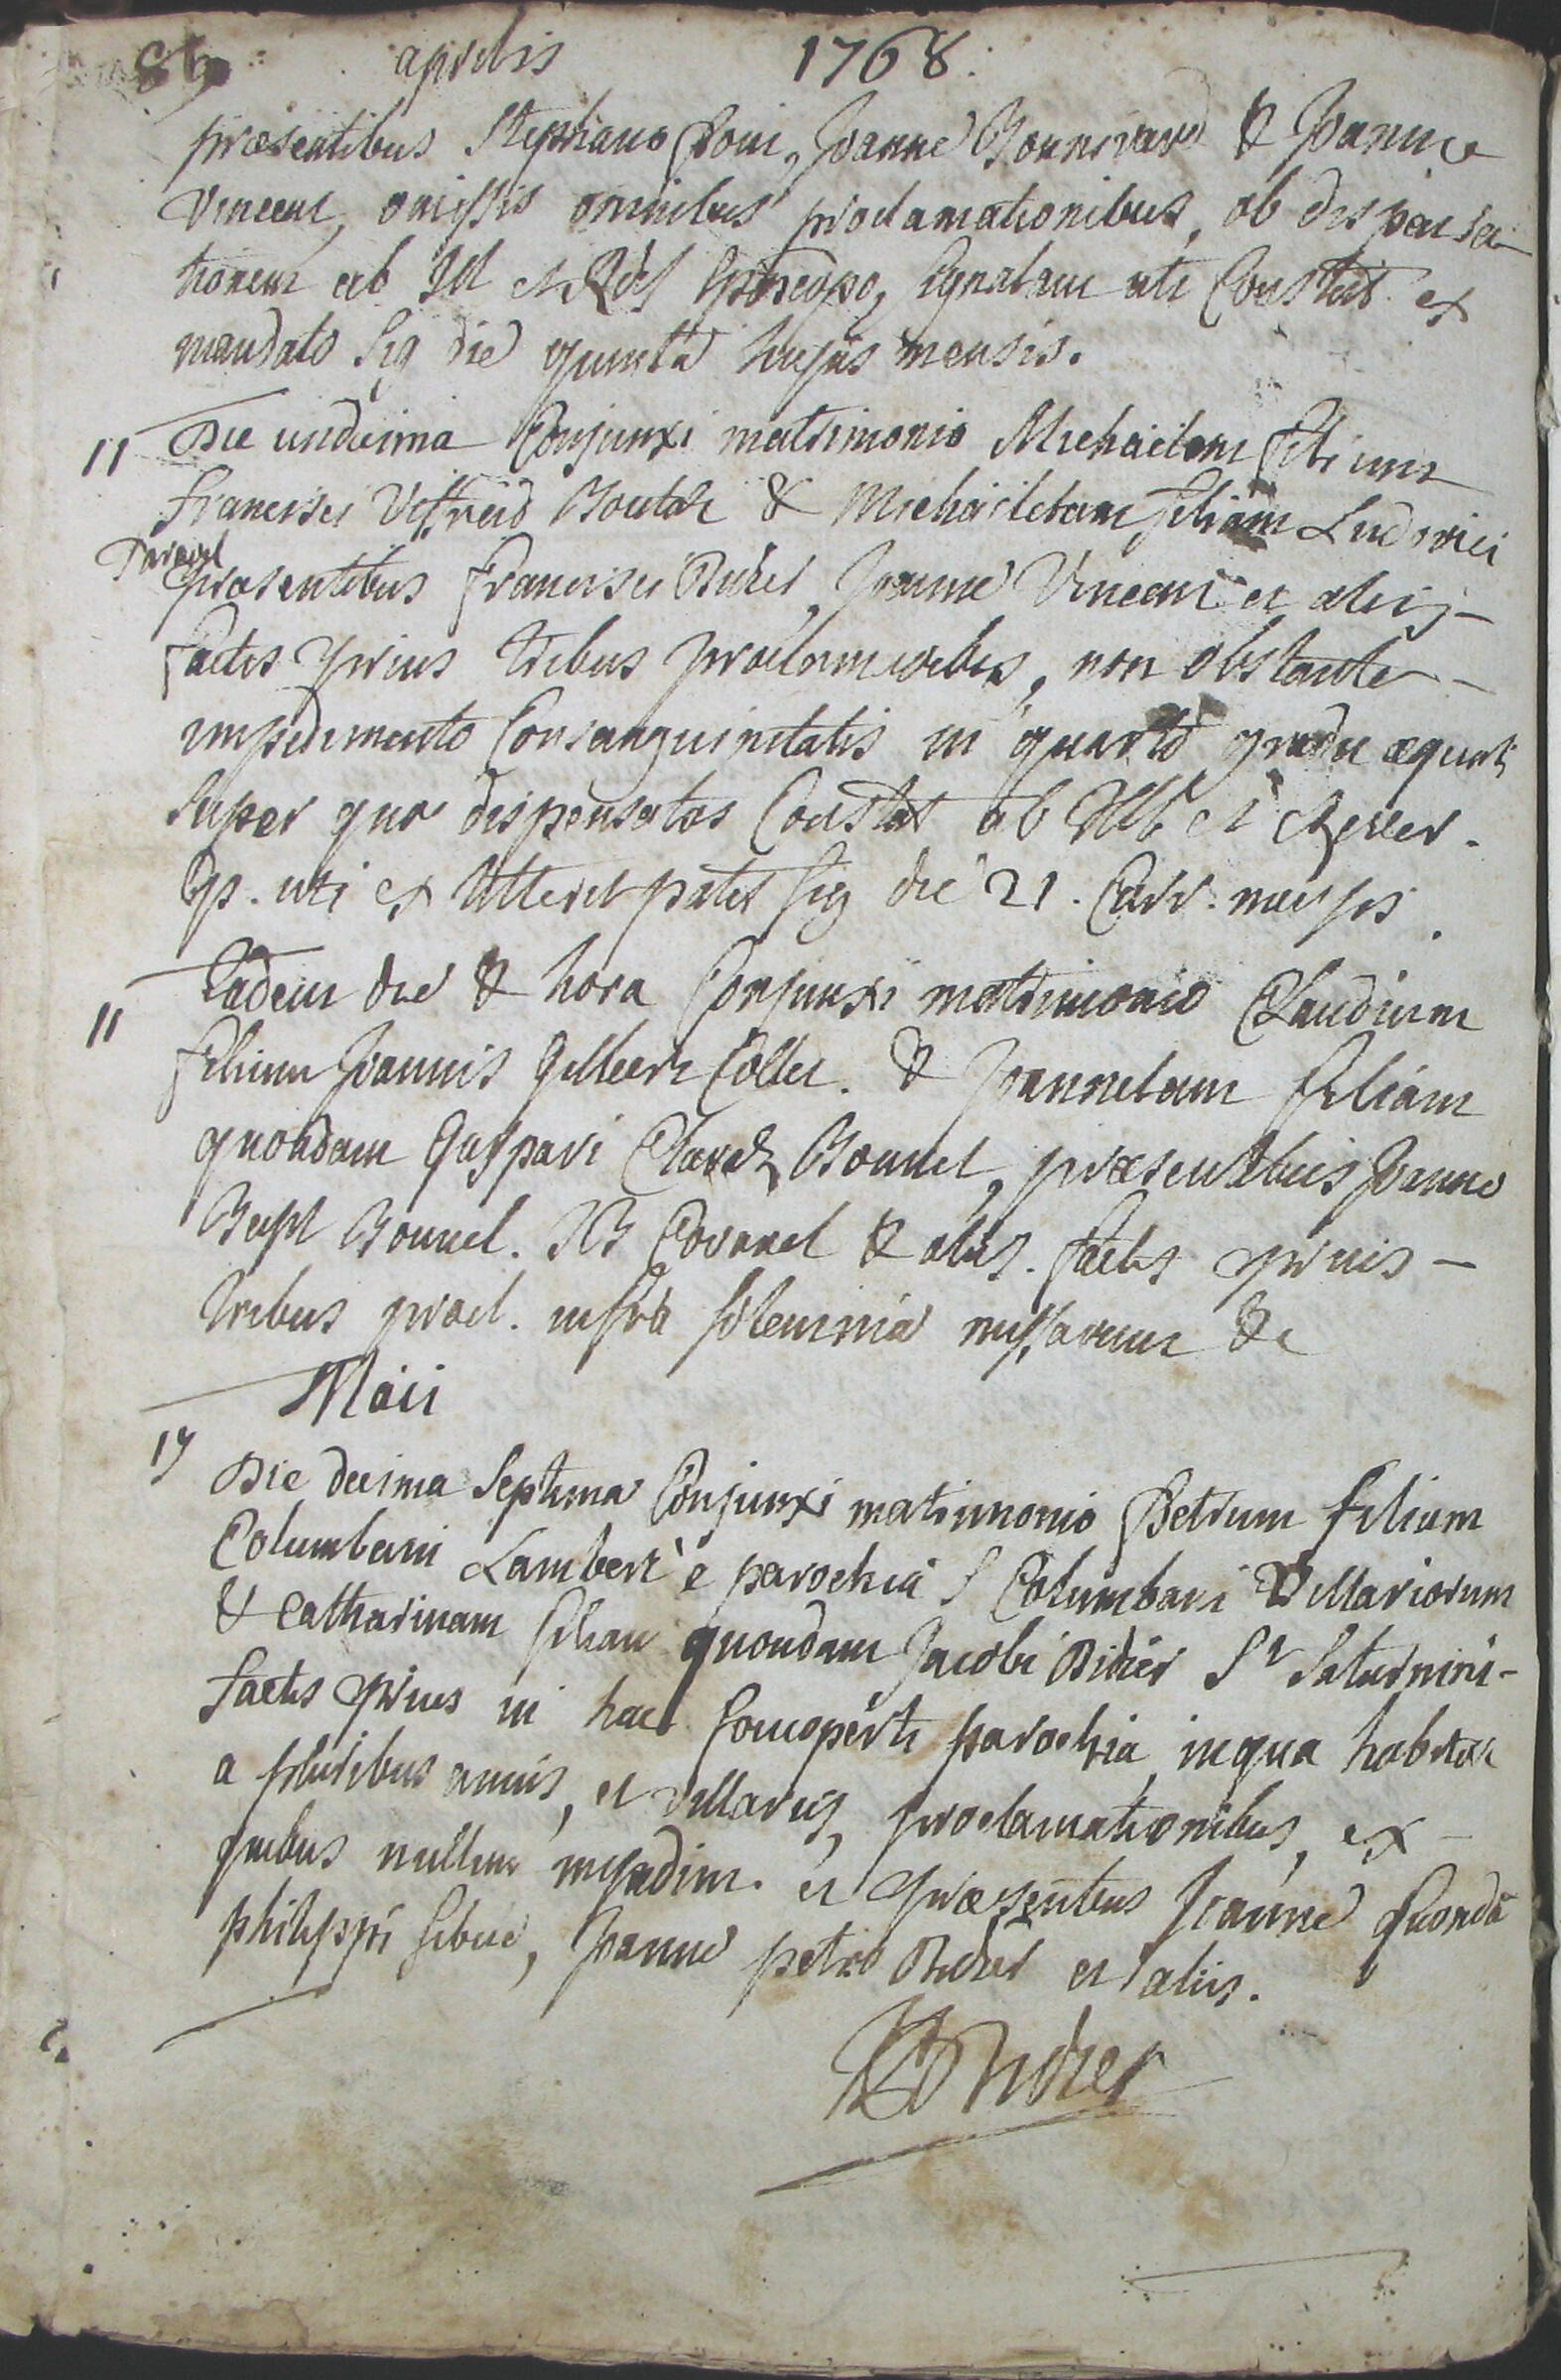 86 aprilis 1768.
præsentibus Stephano Joanne Bonnivard & Joanne
Vincent, omissis omnibus proclamationibus, ob dispensa-
tionem ab Ill et Rdss Episcopo, signatam uti Constat ex
mandato sig die quinta hujus mensis.
11 Die undecima Conjunxi matrimonio Michäelem filium
Francisci Viffreid & Michäeletam filiam Ludovici
præsentibus Francisci Didier, Joanne Vincent et aliis -
factis prius tribus non obstante -
impedimento Consanguinitatis in quarto gradu æquali
super quo dispensatos Constat ab Ill et Rever.
Ep. uti ex litteris patet sig die 21. mensis.
11 Eadem die & hora Conjunxi matrimonio Claudium
filium Joannis Gilbert Collet. & Joannetam filiam
quondam Gaspari Bonnel, præsentibus Joanne
Bapt Bonnel. JB Covarel & aliis. factis prius -
tribus procl. infra solemnia missarum &c
Maii
17 Die decima Septima Conjunxi matrimonio Petrum filium
Columbani Lambert è parochia S Columbani Villariorum
& Catharinam filiam quondam Jacobi Didier Sti Saturnini -
factis prius in hac parochia, in qua habitat
a pluribus annis, et Villariis, proclamationibus, ex -
quibus nullum impedim. et præsentibus Joanne quondã
philippi Sibué, Joanne petro Didier et aliis.
Didier